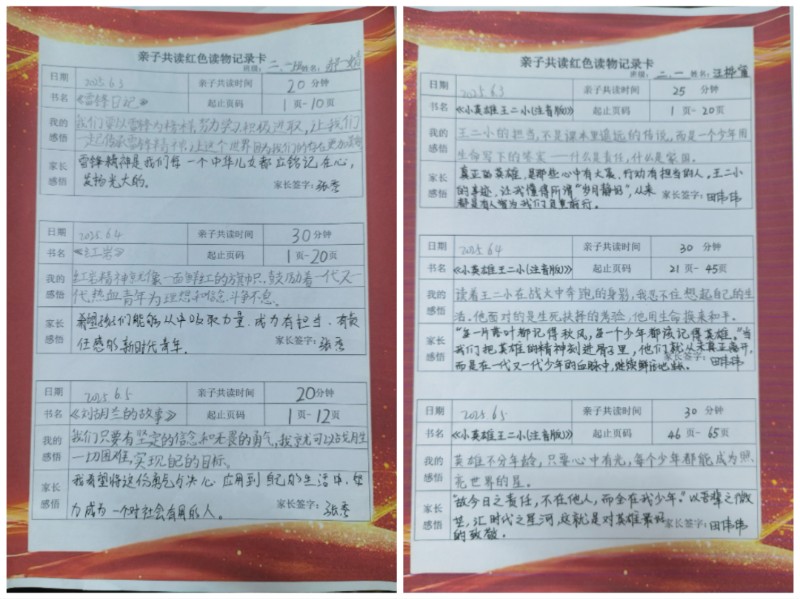 亲子共读红色读物记录卡
班级：二.一班 姓名：
日期 2025.6.3 亲子共读时间 20分钟
书名 《雷锋日记》 起止页码 1页-10页
我的感悟 我们要以雷锋为榜样,努力学习,积极进取,让我们
一起传承雷锋精神,让这个世界因为我们的存在更加美好
家长感悟 雷锋精神是我们每一个中华儿女都应铭记在心,
发扬光大的。 家长签字：张彦
日期 2025.6.4 亲子共读时间 30分钟
书名 《红岩》 起止页码 1页-20页
我的感悟 红岩精神就像一面鲜红的旗帜,鼓励着一代又一
代热血青年为理想和信念斗争不息。
家长感悟 希望孩们能够从中吸取力量,成为有担当、有责
任感的新时代青年。 家长签字：张彦
日期 2025.6.5 亲子共读时间 20分钟
书名 《刘胡兰的故事》 起止页码 1页-12页
我的感悟 我们只要有坚定的信念和无畏的勇气,就可以战胜
一切困难,实现自己的目标。
家长感悟 我希望将这份勇气与决心应用到自己的生活中,努
力成为一个对社会有用的人。 家长签字：张彦
亲子共读红色读物记录卡
班级：二.一 姓名：
日期 2025.6.3 亲子共读时间 25分钟
书名 《小英雄王二小(注音版)》 起止页码 1页-20页
我的感悟 王二小的担当,不是课本里遥远的传说,而是一个少年用
生命写下的答案——什么是责任,什么是家国。
家长感悟 真正的英雄,是那些心中有大義,行动有担当的人。王二小
的事迹,让我懂得所谓"岁月静好",从来
都是有人曾为我们负重前行。 家长签字：田伟伟
日期 2025.6.4 亲子共读时间 30分钟
书名 《小英雄王二小(注音版)》 起止页码 21页-45页
我的感悟 读着王二小在战火中奔跑的身影,我忍不住想起自己的生
活。他面对的是生死抉择的考验,他用生命换来和平。
家长感悟 "每一片落叶都记得秋风,每一个少年都该记得英雄。"当
我们把英雄的精神刻进骨子里,他们就从未真正离开,
而是在一代又一代少年的血脉中,继续鲜活地跳跃。 家长签字：田伟伟
日期 2025.6.5 亲子共读时间 30分钟
书名 《小英雄王二小(注音版)》 起止页码 46页-65页
我的感悟 英雄不分年龄,只要心中有光,每个少年都能成为照
亮世界的星。
家长感悟 "故今日之责任,不在他人,而全在我少年。"以吾辈之微
芒,汇时代之星河,这就是对英雄最好
的致敬。 家长签字：田伟伟